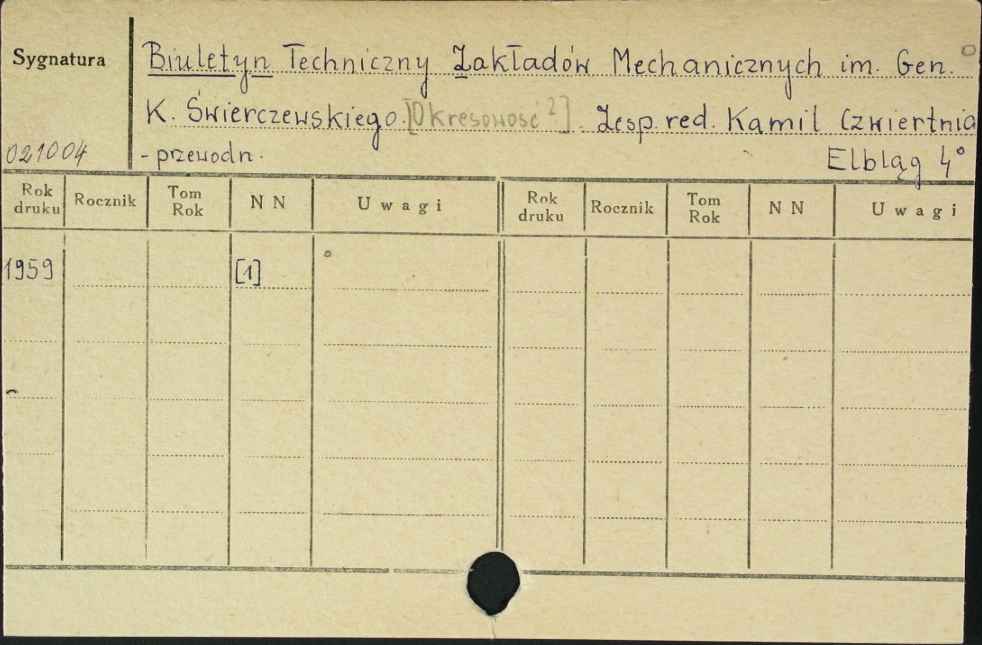 Sygnatura
Biuletyn Techniczny Zakładów Mechanicznych im. Gen.
K. Świerczewskiego. [Okresowość ?]. Zesp. red. Kamil Czwiertnia
021004 - przewodn. Elbląg 4°
Rok druku Rocznik Tom Rok NN Uwagi Rok druku Rocznik Tom Rok NN Uwagi
1959 [1]